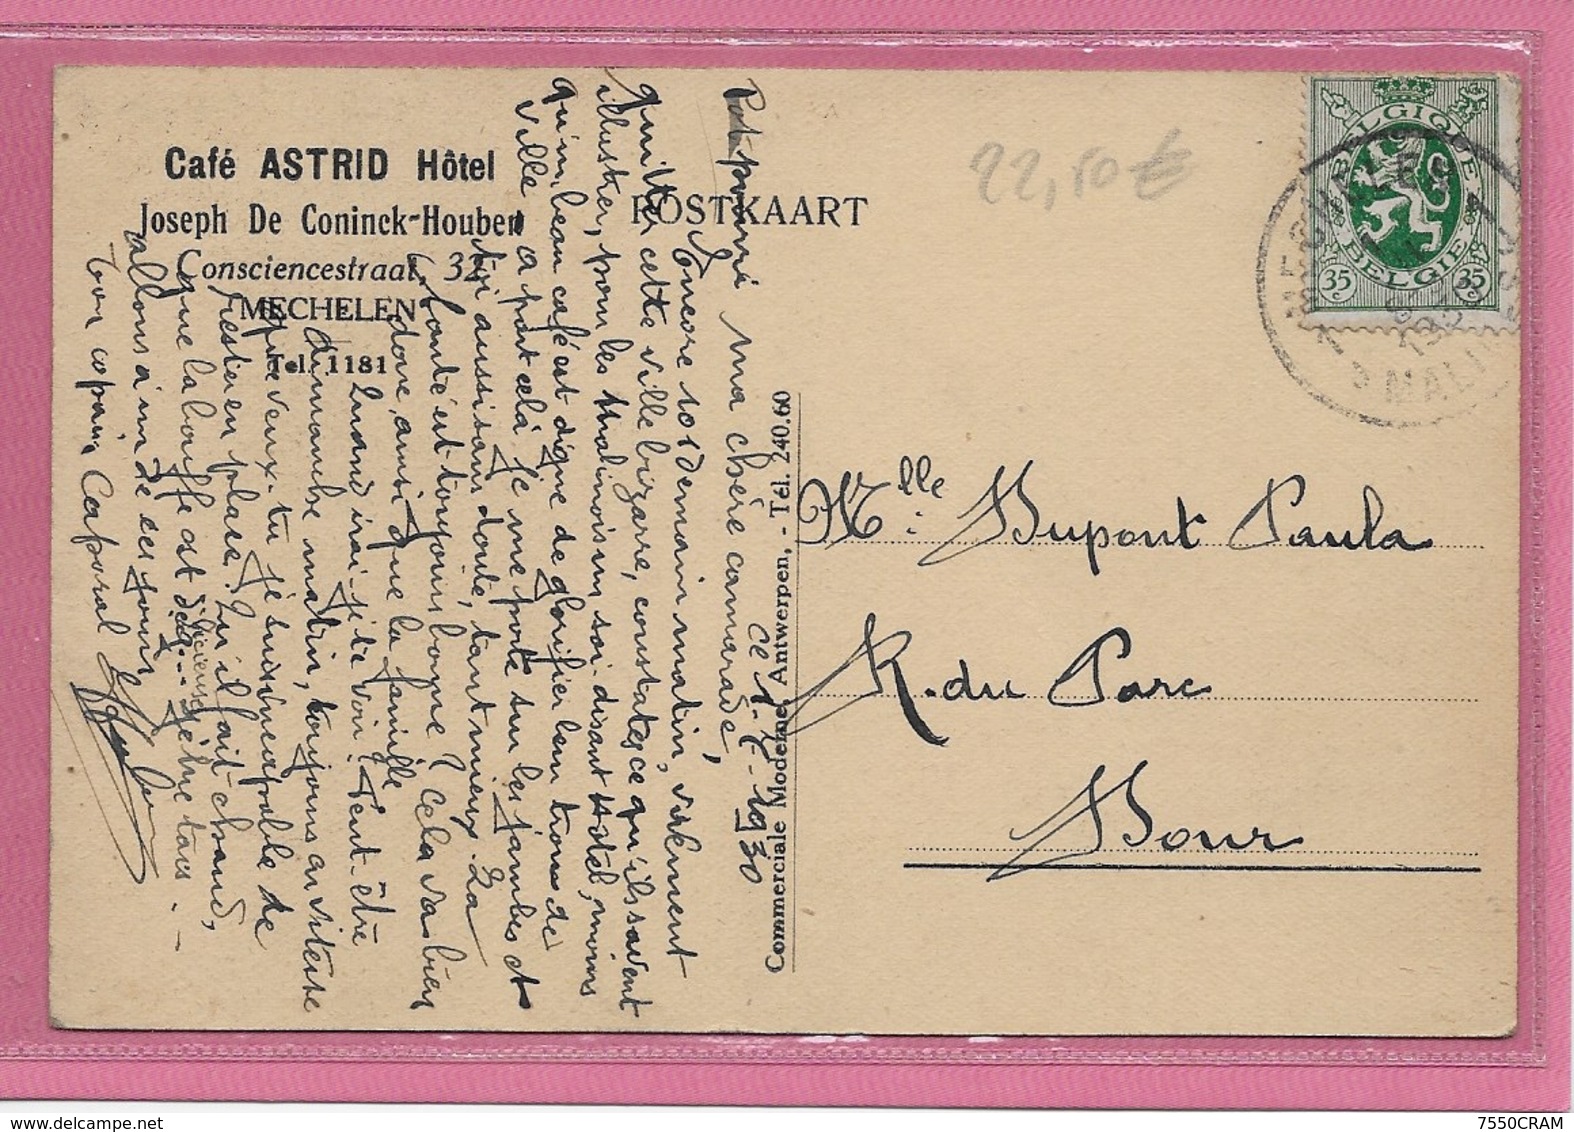 Café ASTRID Hôtel
Joseph De Coninck-Houben
Consciencestraat, 32
MECHELEN
Tel. 1181
POSTKAART
22,50€
BELGIQUE
BELGIE
35 c
35 c
MECHELEN
1930
MALINES
Commerciale Moderne, Antwerpen, - Tél. 240.60
Mlle Dupont Paula
R. du Parc
Hour
ce 1-7-1930
ma chère camarade,
Encore 10 1 demain matin, vivement
quitter cette ville bizarre, constates ce qu'ils savent
illustrer, pour les Malinois un soi-disant Hôtel, moins
qu'un beau café est digne de glorifier leur trou de
ville à part cela je me porte sur les jambes et
toi aussi sans doute, tant mieux. La
santé est toujours bonne? Cela va bien
donc, ainsi que la famille
Quand irai-je te voir? Peut-être
dimanche matin, toujours en vitesse
que veux-tu je suis incapable de
rester en place. Qu'il fait chaud,
que la bouffe est
allons à un de ces jours
ton copain Caporal